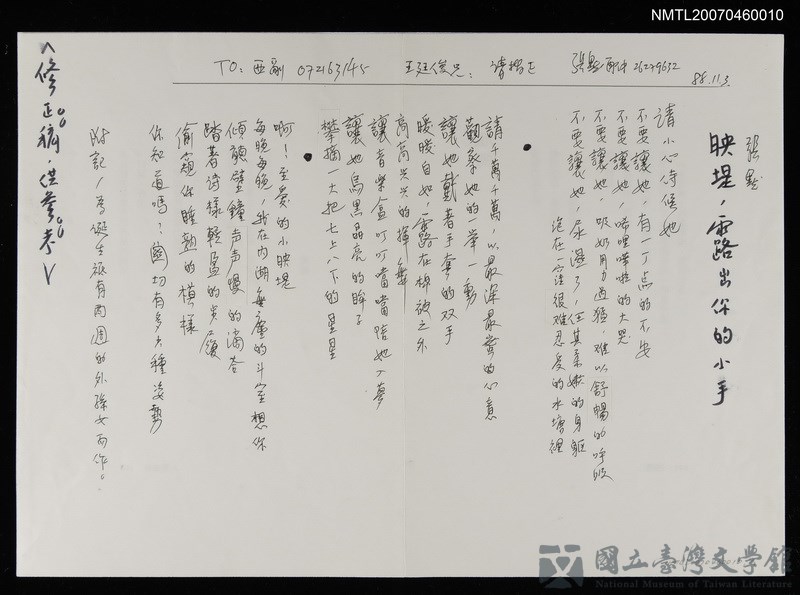 NMTL20070460010
TO：西副 072163145 王廷俊兄：請指正 張默 敬上 26279632
88.11.3.
映堤，露出你的小手
張默
請小心侍候她
不要讓她，有一丁点的不安
不要讓她，唏哩嘩啦的大哭
不要讓她，吸奶用力過猛，難以舒暢的呼吸
不要讓她，尿濕了，任其柔嫩的身軀
泡在一窪很難忍受的水塘裡
●
請千萬千萬，以最深最蜜的心意
觀察她的一舉一動
讓她戴著手套的双手
暖暖自她，露在棉被之外
高高兴兴的揮舞
讓音樂盒叮叮噹噹陪她入夢
讓她烏黑晶亮的眸子
攀摘一大把七上八下的星星
●
啊！至愛的小映堤
每晚每晚，我在內湖無塵的斗室想你
傾聽壁鐘声声慢的滴答
踏著詩樣輕盈的步履
偷窺你睡熟的模樣
你知道嗎？窗切有多少種姿勢
附記／為誕生祇有兩週的外孫女而作。
〈修正稿，供參考〉
國立臺灣文學館
National Museum of Taiwan Literature